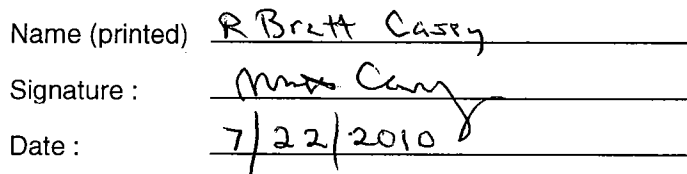 Name (printed) R Brett Casey
Signature :
Date : 7/22/2010